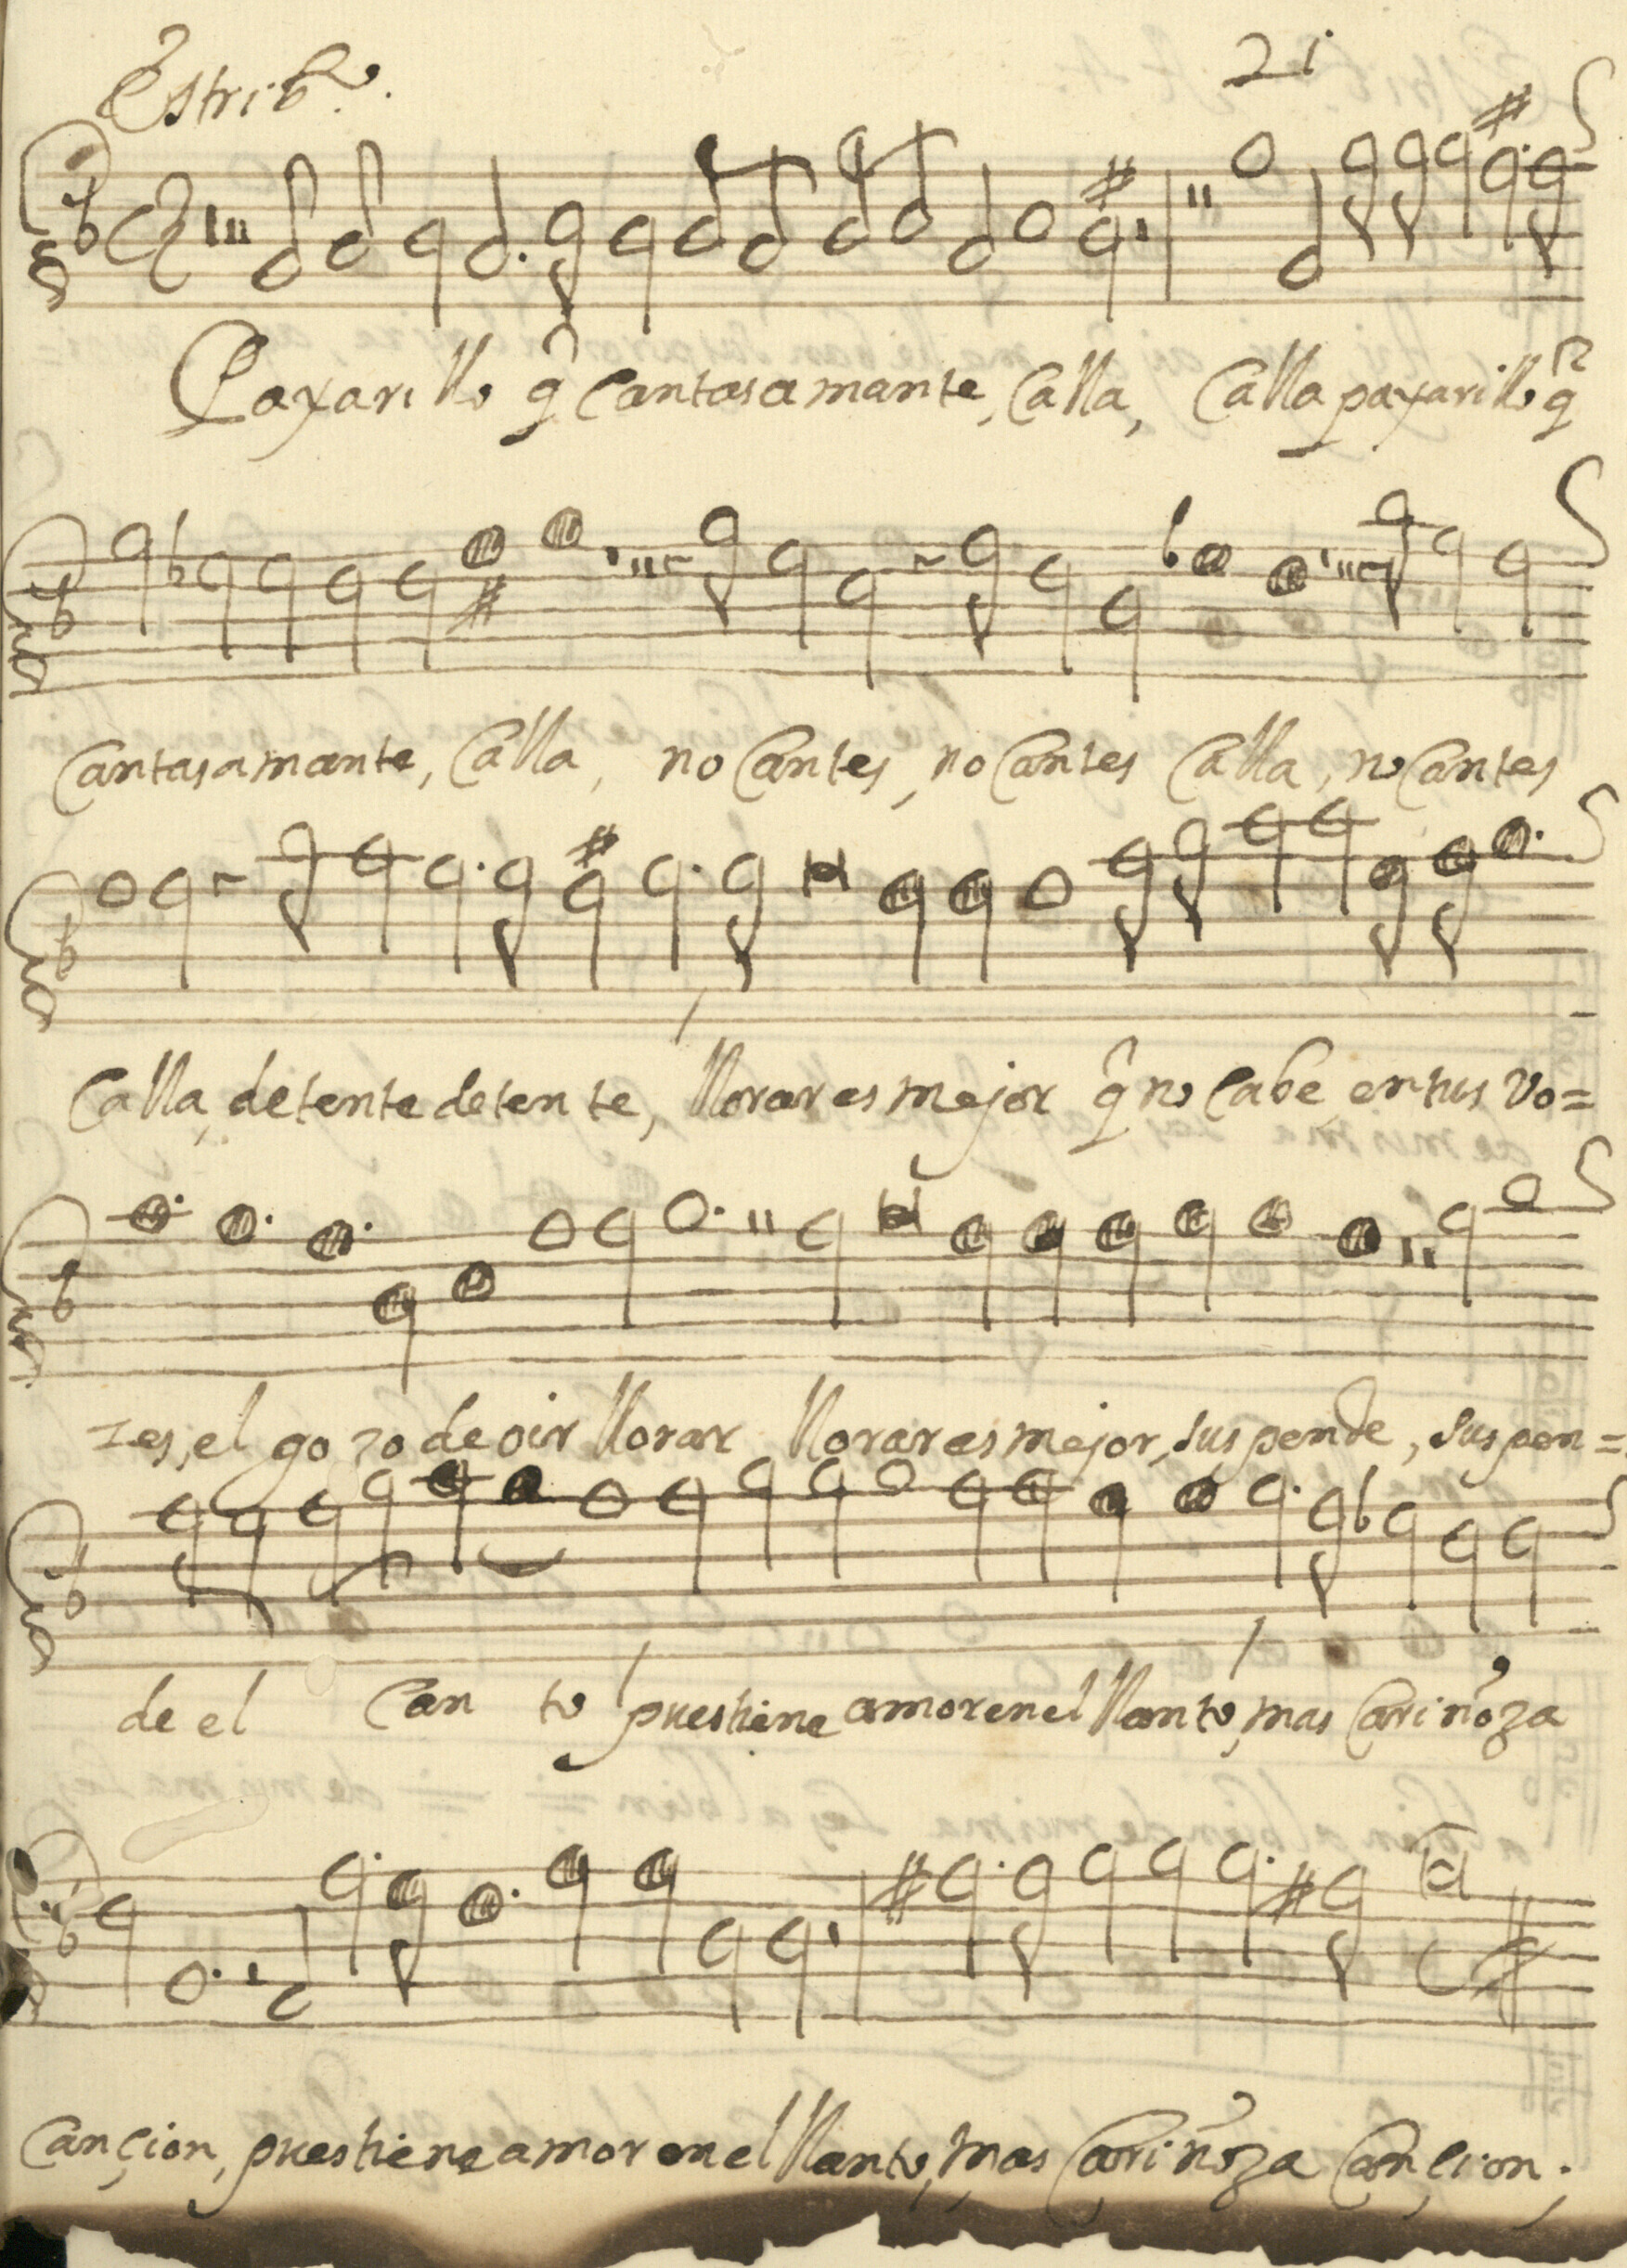 Estribo.
21
Paxarillo q̂ Cantas amante, Calla, Calla paxarillo q̂
Cantas amante, Calla, no Cantes, no Cantes Calla, no Cantes
Calla, detente detente, llorar es mejor q̂ no Cabe en tus vo=
zes, el gozo de oir llorar llorar es mejor, suspende, suspen=
de el Can to pues tiene amor en el llanto, mas Cariñoza
Cançion, pues tiene amor en el llanto, mas Cariñoza Cançion.